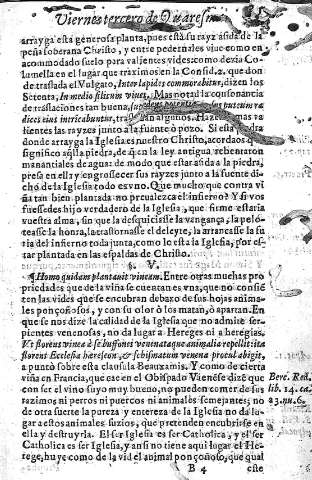 Viernes tercero de Quaresma
arrayga esta generosa planta, pues està su rayz asida de la
peña soberana Christo, y entre pedernales viue como en
acommodado suelo para valientes vides: como dezia Co-
lumella en el lugar que traximos en la Consid. 2. que don
de traslada el Vulgato, Inter lapides commorabitur, dizen los
Setenta, In medio silicum viuet. Mas notad la consonancia
de traslaciones tan buena,
dices eius intricabuntur, algunos. Hazen mas va
lientes las rayzes junto a la fuente ò pozo. Si esta piedra
donde arrayga la Iglesia es nuestro Christo, acordaos q̃
significò aq̃lla piedra, de q̃ en la ley antigua rebentaron
manantiales de aguas de modo que estar asida a la piedra,
presa en ella y engrossecer sus rayzes junto a la fuente di-
cho de la Iglesia todo es vno. Que mucho que contra vi
ña tan bien plantada no preualezca el infierno? Y si vos
fuessedes hijo verdadero de la Iglesia, que firme estaria
vuestra alma, sin que la desquiciasse la vengança, la pelo-
teasse la honra, la trastornasse el deleyte, la arrancasse la fu
ria del infierno toda junta, como le està la Iglesia, por es-
tar plantada en las espaldas de Christo.
§. V.
Homo quidam plantauit vineam. Entre otras muchas pro
priedades que de la viña se cuentan es vna, que no consié
ten las vides que se encubran debaxo de sus hojas anima-
les ponçoñosos, y con su olor ò los matan, ò apartan. En
que se nos dize la calidad de la Iglesia que no admite ser-
pientes venenosas, no da lugar a Hereges ni a heregias.
Vt florens vinea de se buffones venenataque animalia repellit: ita
florens Ecclesia hereseon, & schismatum venena procul abigit,
a puntò sobre esta clausula Beauxamis. Y como de cierta
viña en Francia, que cae en el Obispado Vienese dizẽ que
con ser el vino suyo muy bueno, no pueden comer de sus
razimos ni perros ni puercos ni animales semejantes; no
de otra suerte la pureza y entereza de la Iglesia no da lu-
gar a estos animales suzios, que pretenden encubrirse en
ella y destruyrla. El ser Iglesia es ser Catholica, y el ser
Catholica es ser Iglesia, y ansi no tiene aqui lugar el He-
rege, huye como de la vid el animal ponçoñoso, que qual
B 4 este
Berc. Red.
lib. 14. ca.
23. nu. 6.